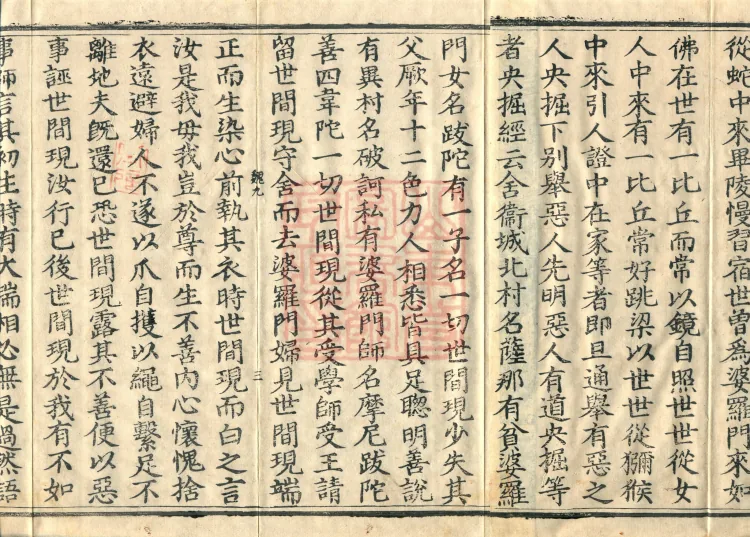 從蛇中來畢陵慢習宿世曾爲婆羅門來如
佛在世有一比丘而常以鏡自照世世從女
人中來有一比丘常好跳梁以世世從獼猴
中來引人證中在家等者即且通舉有惡之
人央掘下別舉惡人先明惡人有道央掘等
者央掘經云舍衞城北村名薩那有貧婆羅
門女名跋陀有一子名一切世間現少失其
父厥年十二色力人相悉皆具足聰明善說
有異村名破訶私有婆羅門師名摩尼跋陀
善四韋陀一切世間現從其受學師受王請
留世間現守舍而去婆羅門婦見世間現端
正而生染心前執其衣時世間現而白之言
魏九
三
汝是我母我豈於尊而生不善内心懷愧捨
衣遠避婦人不遂以爪自攫以繩自繫足不
離地夫旣還已恐世間現露其不善便以惡
事誣世間現汝行已後世間現於我有不如
事師信其初生時有大瑞相必無是過然語